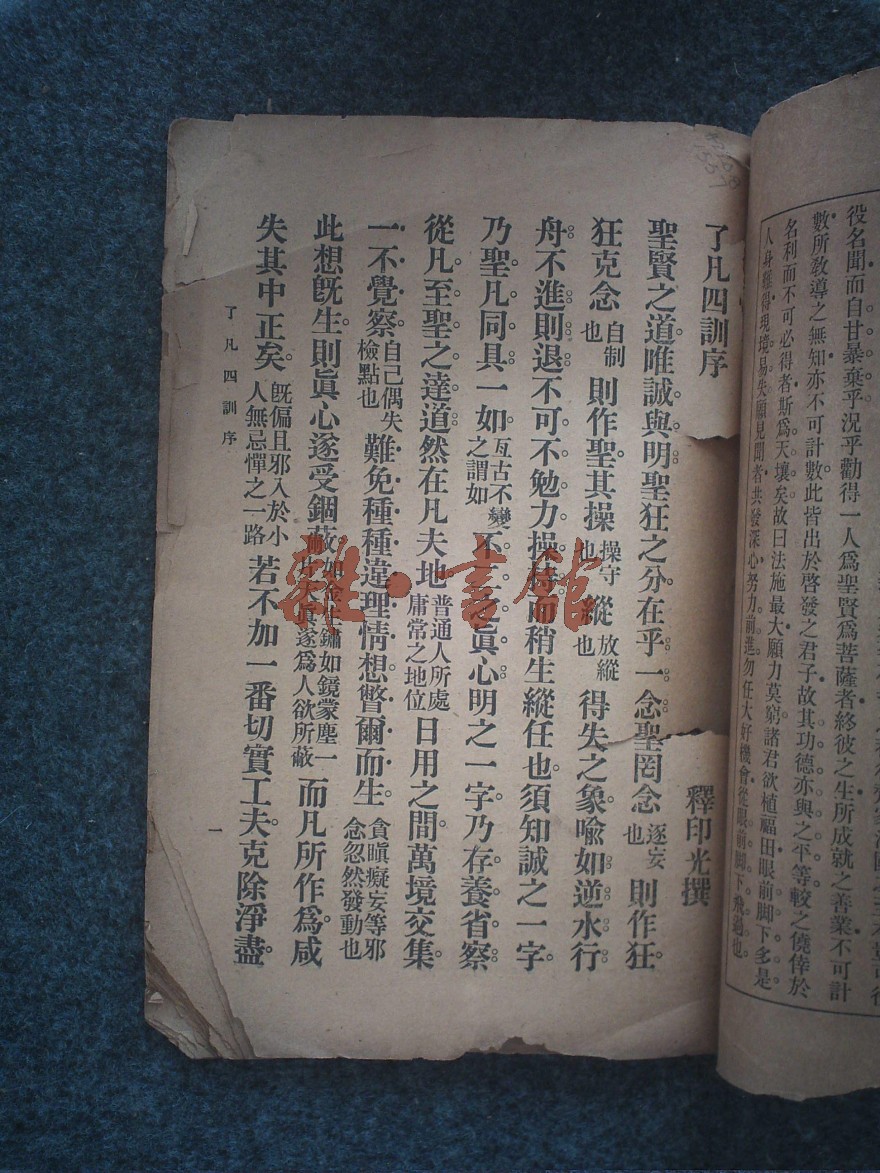 役名聞而自甘暴棄乎況乎勸得一人爲聖賢爲菩薩者終彼之生所成就之善業不可計
數所敎導之無知亦不可計數此皆出於啓發之君子故其功德亦與之平等較之僥倖於
名利而不可必得者斯爲天壤矣故曰法施最大願力莫窮諸君欲植福田眼前脚下多是
人身難得現境易失願見聞者共發深心努力前進勿任大好機會從眼前脚下飛過也
了凡四訓序
釋印光撰
聖賢之道唯誠與明聖狂之分在乎一念聖罔念逐妄也則作狂
狂克念自制也則作聖其操操守也縱放縱也得失之象喩如逆水行
舟不進則退不可不勉力操持而稍生縱任也須知誠之一字
乃聖凡同具一如亙古不變之謂如不二之眞心明之一字乃存養省察
從凡至聖之達道然在凡夫地普通人所處庸常之地位日用之間萬境交集
一不覺察自己偶失檢點也難免種種違理情想瞥爾而生貪瞋癡妄等邪念忽然發動也
此想旣生則眞心遂受錮蔽如金生鏽如鏡蒙塵一片天眞遂爲人欲所蔽而凡所作爲咸
失其中正矣旣偏且邪入於小人無忌憚之一路若不加一番切實工夫克除淨盡
了凡四訓序
一
雜·書館